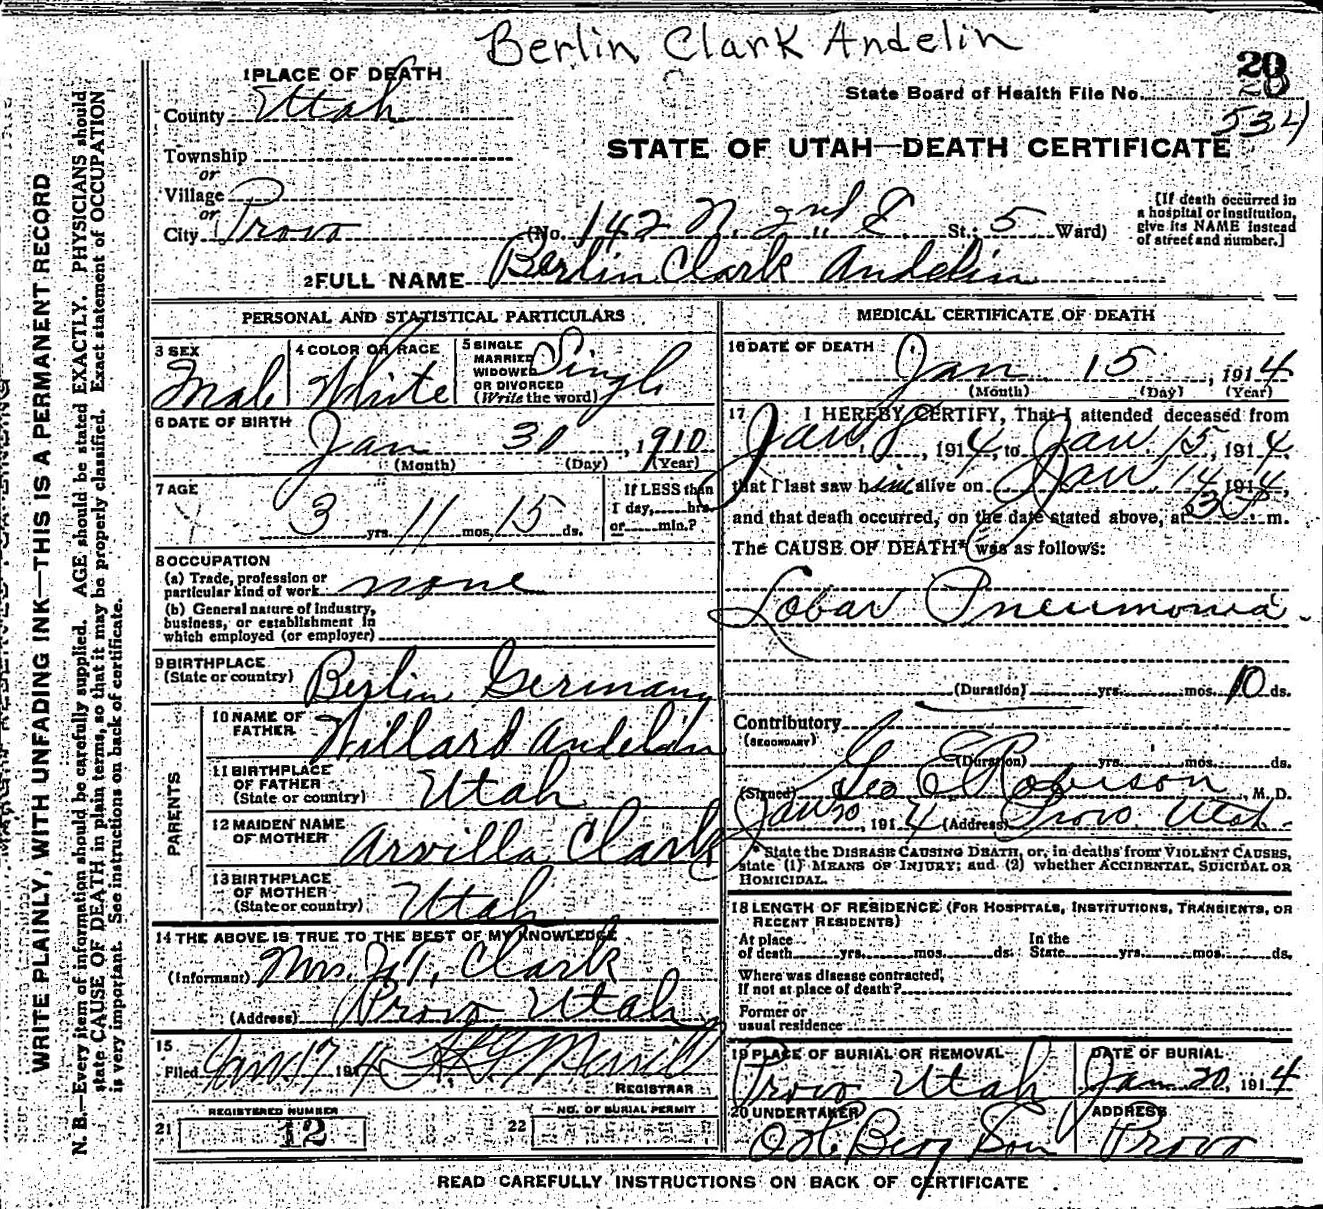 Berlin Clark Andelin
20
20
State Board of Health File No.
534
1 PLACE OF DEATH
County Utah
STATE OF UTAH—DEATH CERTIFICATE
Township
or
Village
or
City Provo (No. 142 N. 2nd E. St.; 5 Ward)
[If death occurred in a hospital or institution, give its NAME instead of street and number.]
2 FULL NAME Berlin Clark Andelin
WRITE PLAINLY, WITH UNFADING INK—THIS IS A PERMANENT RECORD
N. B.—Every item of information should be carefully supplied. AGE should be stated EXACTLY. PHYSICIANS should
state CAUSE OF DEATH in plain terms, so that it may be properly classified. Exact statement of OCCUPATION
is very important. See instructions on back of certificate.
PERSONAL AND STATISTICAL PARTICULARS
3 SEX
Male
4 COLOR OR RACE
White
5 SINGLE
MARRIED
WIDOWED
OR DIVORCED
(Write the word)
Single
6 DATE OF BIRTH
Jan 30, 1910
(Month) (Day) (Year)
7 AGE
3 yrs. 11 mos. 15 ds.
If LESS than
1 day,......hrs.
or......min.?
8 OCCUPATION
(a) Trade, profession or
particular kind of work none
(b) General nature of industry,
business, or establishment in
which employed (or employer)
9 BIRTHPLACE
(State or country) Berlin Germany
PARENTS
10 NAME OF
FATHER Willard Andelin
11 BIRTHPLACE
OF FATHER
(State or country) Utah
12 MAIDEN NAME
OF MOTHER Arvilla Clark
13 BIRTHPLACE
OF MOTHER
(State or country) Utah
14 THE ABOVE IS TRUE TO THE BEST OF MY KNOWLEDGE
(Informant) Mrs. J. T. Clark
(Address) Provo Utah
15
Filed Jan 17 1914 Merrill
REGISTRAR
21 REGISTERED NUMBER
12
22 NO. OF BURIAL PERMIT
MEDICAL CERTIFICATE OF DEATH
16 DATE OF DEATH
Jan. 15, 1914
(Month) (Day) (Year)
17 I HEREBY CERTIFY, That I attended deceased from
Jan 8, 1914, to Jan. 15, 1914,
that I last saw him alive on Jan. 14, 1914,
and that death occurred, on the date stated above, at 3 P. m.
The CAUSE OF DEATH* was as follows:
Lobar Pneumonia
(Duration) yrs. mos. 10 ds.
Contributory
(SECONDARY)
(Duration) yrs. mos. ds.
(Signed) Geo E Robison, M. D.
Jan 20, 1914 (Address) Provo, Utah
*State the DISEASE CAUSING DEATH, or, in deaths from VIOLENT CAUSES,
state (1) MEANS OF INJURY; and (2) whether ACCIDENTAL, SUICIDAL OR
HOMICIDAL.
18 LENGTH OF RESIDENCE (FOR HOSPITALS, INSTITUTIONS, TRANSIENTS, OR
RECENT RESIDENTS)
At place
of death yrs. mos. ds.
In the
State yrs. mos. ds.
Where was disease contracted,
if not at place of death?
Former or
usual residence
19 PLACE OF BURIAL OR REMOVAL
Provo Utah
DATE OF BURIAL
Jan 20, 1914
20 UNDERTAKER
O H Berg Son
ADDRESS
Provo
READ CAREFULLY INSTRUCTIONS ON BACK OF CERTIFICATE